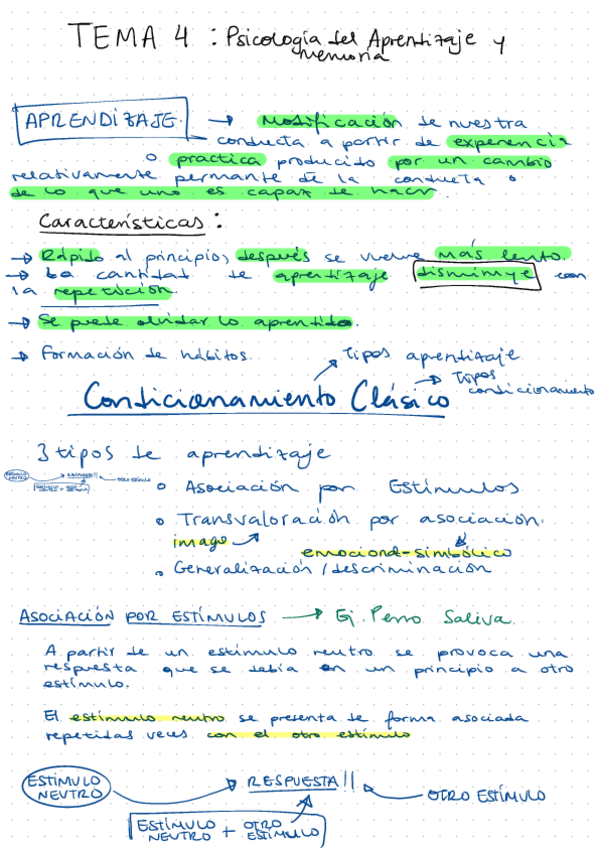 TEMA 4 : Psicología del Aprendizaje y
memoria
APRENDIZAJE → Modificación de nuestra
conducta a partir de experiencia
o practica producido por un cambio
relativamente permante de la conducta o
de lo que uno es capaz de hacer
Características :
→ Rápido al principio, después se vuelve más lento.
→ La cantidad de aprendizaje disminuye con
la repetición.
→ Se puede olvidar lo aprendido.
→ Formación de hábitos.
tipos aprendizaje
Condicionamiento Clásico → tipos
condicionamiento
3 tipos de aprendizaje
ESTÍMULO NEUTRO
o Asociación por Estímulos
o Transvaloración por asociación.
imago
emocional-simbólico
o Generalización/discriminación
ASOCIACIÓN POR ESTÍMULOS → Ej. Perro Saliva.
A partir de un estímulo neutro se provoca una
respuesta que se debía en un principio a otro
estímulo.
El estímulo neutro se presenta de forma asociada
repetidas veces con el otro estímulo
ESTÍMULO
NEUTRO
RESPUESTA!!
OTRO ESTÍMULO
ESTÍMULO + OTRO
NEUTRO ESTÍMULO